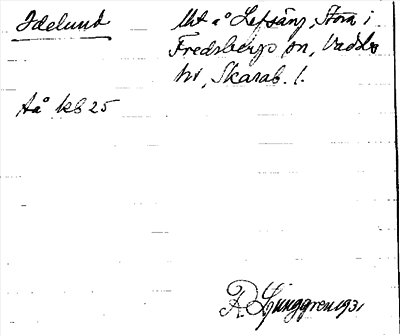 Idelund
Uht å Lefsäng, Stora i
Fredsbergs sn, Vadsbo
hd, Skarab. l.
tå kb 25
R. Ljunggren 1931